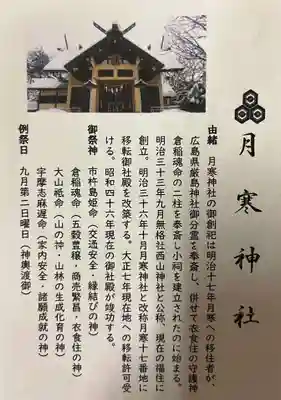 月寒神社
由緒　月寒神社の御創祀は明治十七年月寒への移住者が、
広島県厳島神社御分霊を奉斎し、併せて衣食住の守護神
倉稲魂命の二柱を奉斎し小祠を建立されたのに始まる。
明治三十三年九月無格社西山神社と公称、現在の福住に
創立。明治三十六年十月月寒神社と改称月寒十七番地に
移転御社殿を改築する。大正七年現在地への移転許可受
ける。昭和四十六年現在の御社殿が竣功する。
御祭神　市杵島姫命（交通安全・縁結びの神）
倉稲魂命（五穀豊穣・商売繁昌・衣食住の神）
大山祗命（山の神・山林の生成化育の神）
宇摩志麻遅命（家内安全・諸願成就の神）
例祭日　九月第二日曜日（神輿渡御）